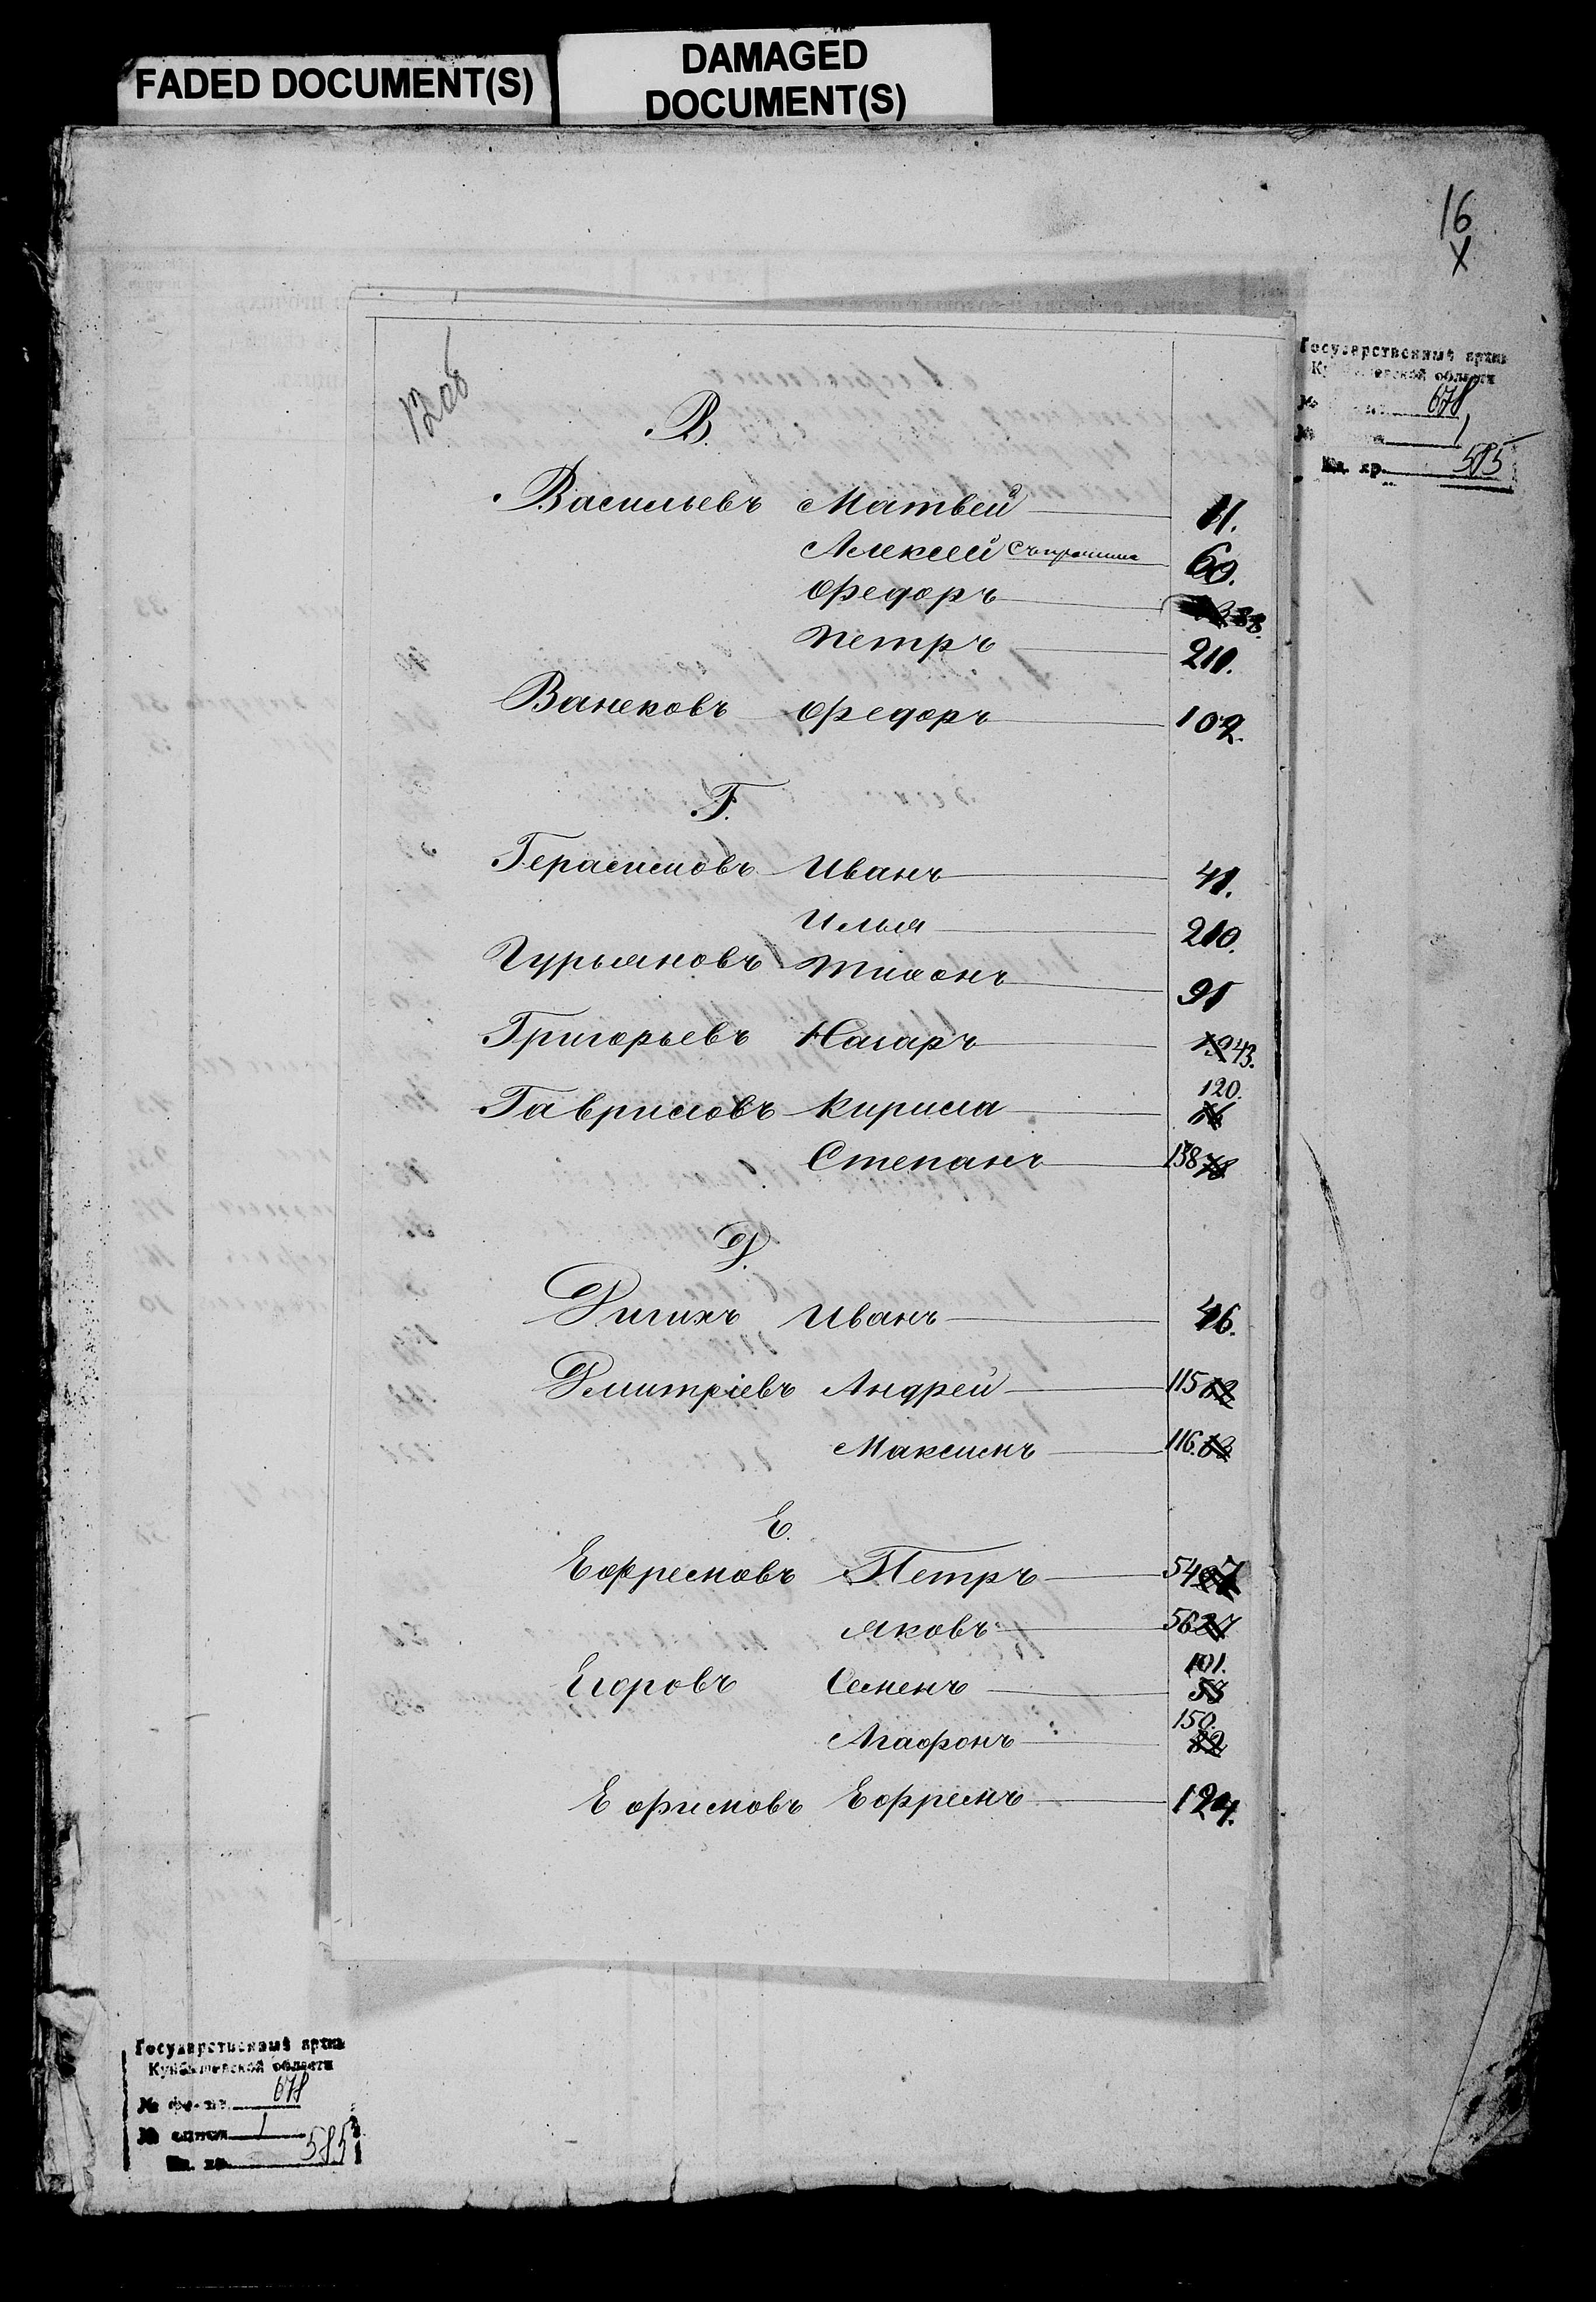 FADED DOCUMENT(S)
DAMAGED
DOCUMENT(S)
16
х
Государственный архив
Куйбышевской области
678
1
Ед. хр. 585
12 об
В.
Васильевъ Матвей 11.
Алексей 60.
Федоръ 88.
Петръ 210.
Ванековъ Федоръ 102.
Г.
Герасимовъ Иванъ 41.
Илья 210.
Гурьяновъ Тихонъ 91
Григорьевъ Назаръ 43.
120.
Гавриловъ Кирила
Степанъ 138
Д.
Иванъ 46.
Дмитріевъ Андрей 115
Максимъ 116.
Е.
Ефремовъ Петръ 54
Яковъ 56 27
101.
Егоровъ Семенъ 53
150.
Агафонъ 82
Ефимовъ Ефремъ 124.
Государственный архив
Куйбышевской области
№ фонда 678
№ описи 1
Ед. хр. 585